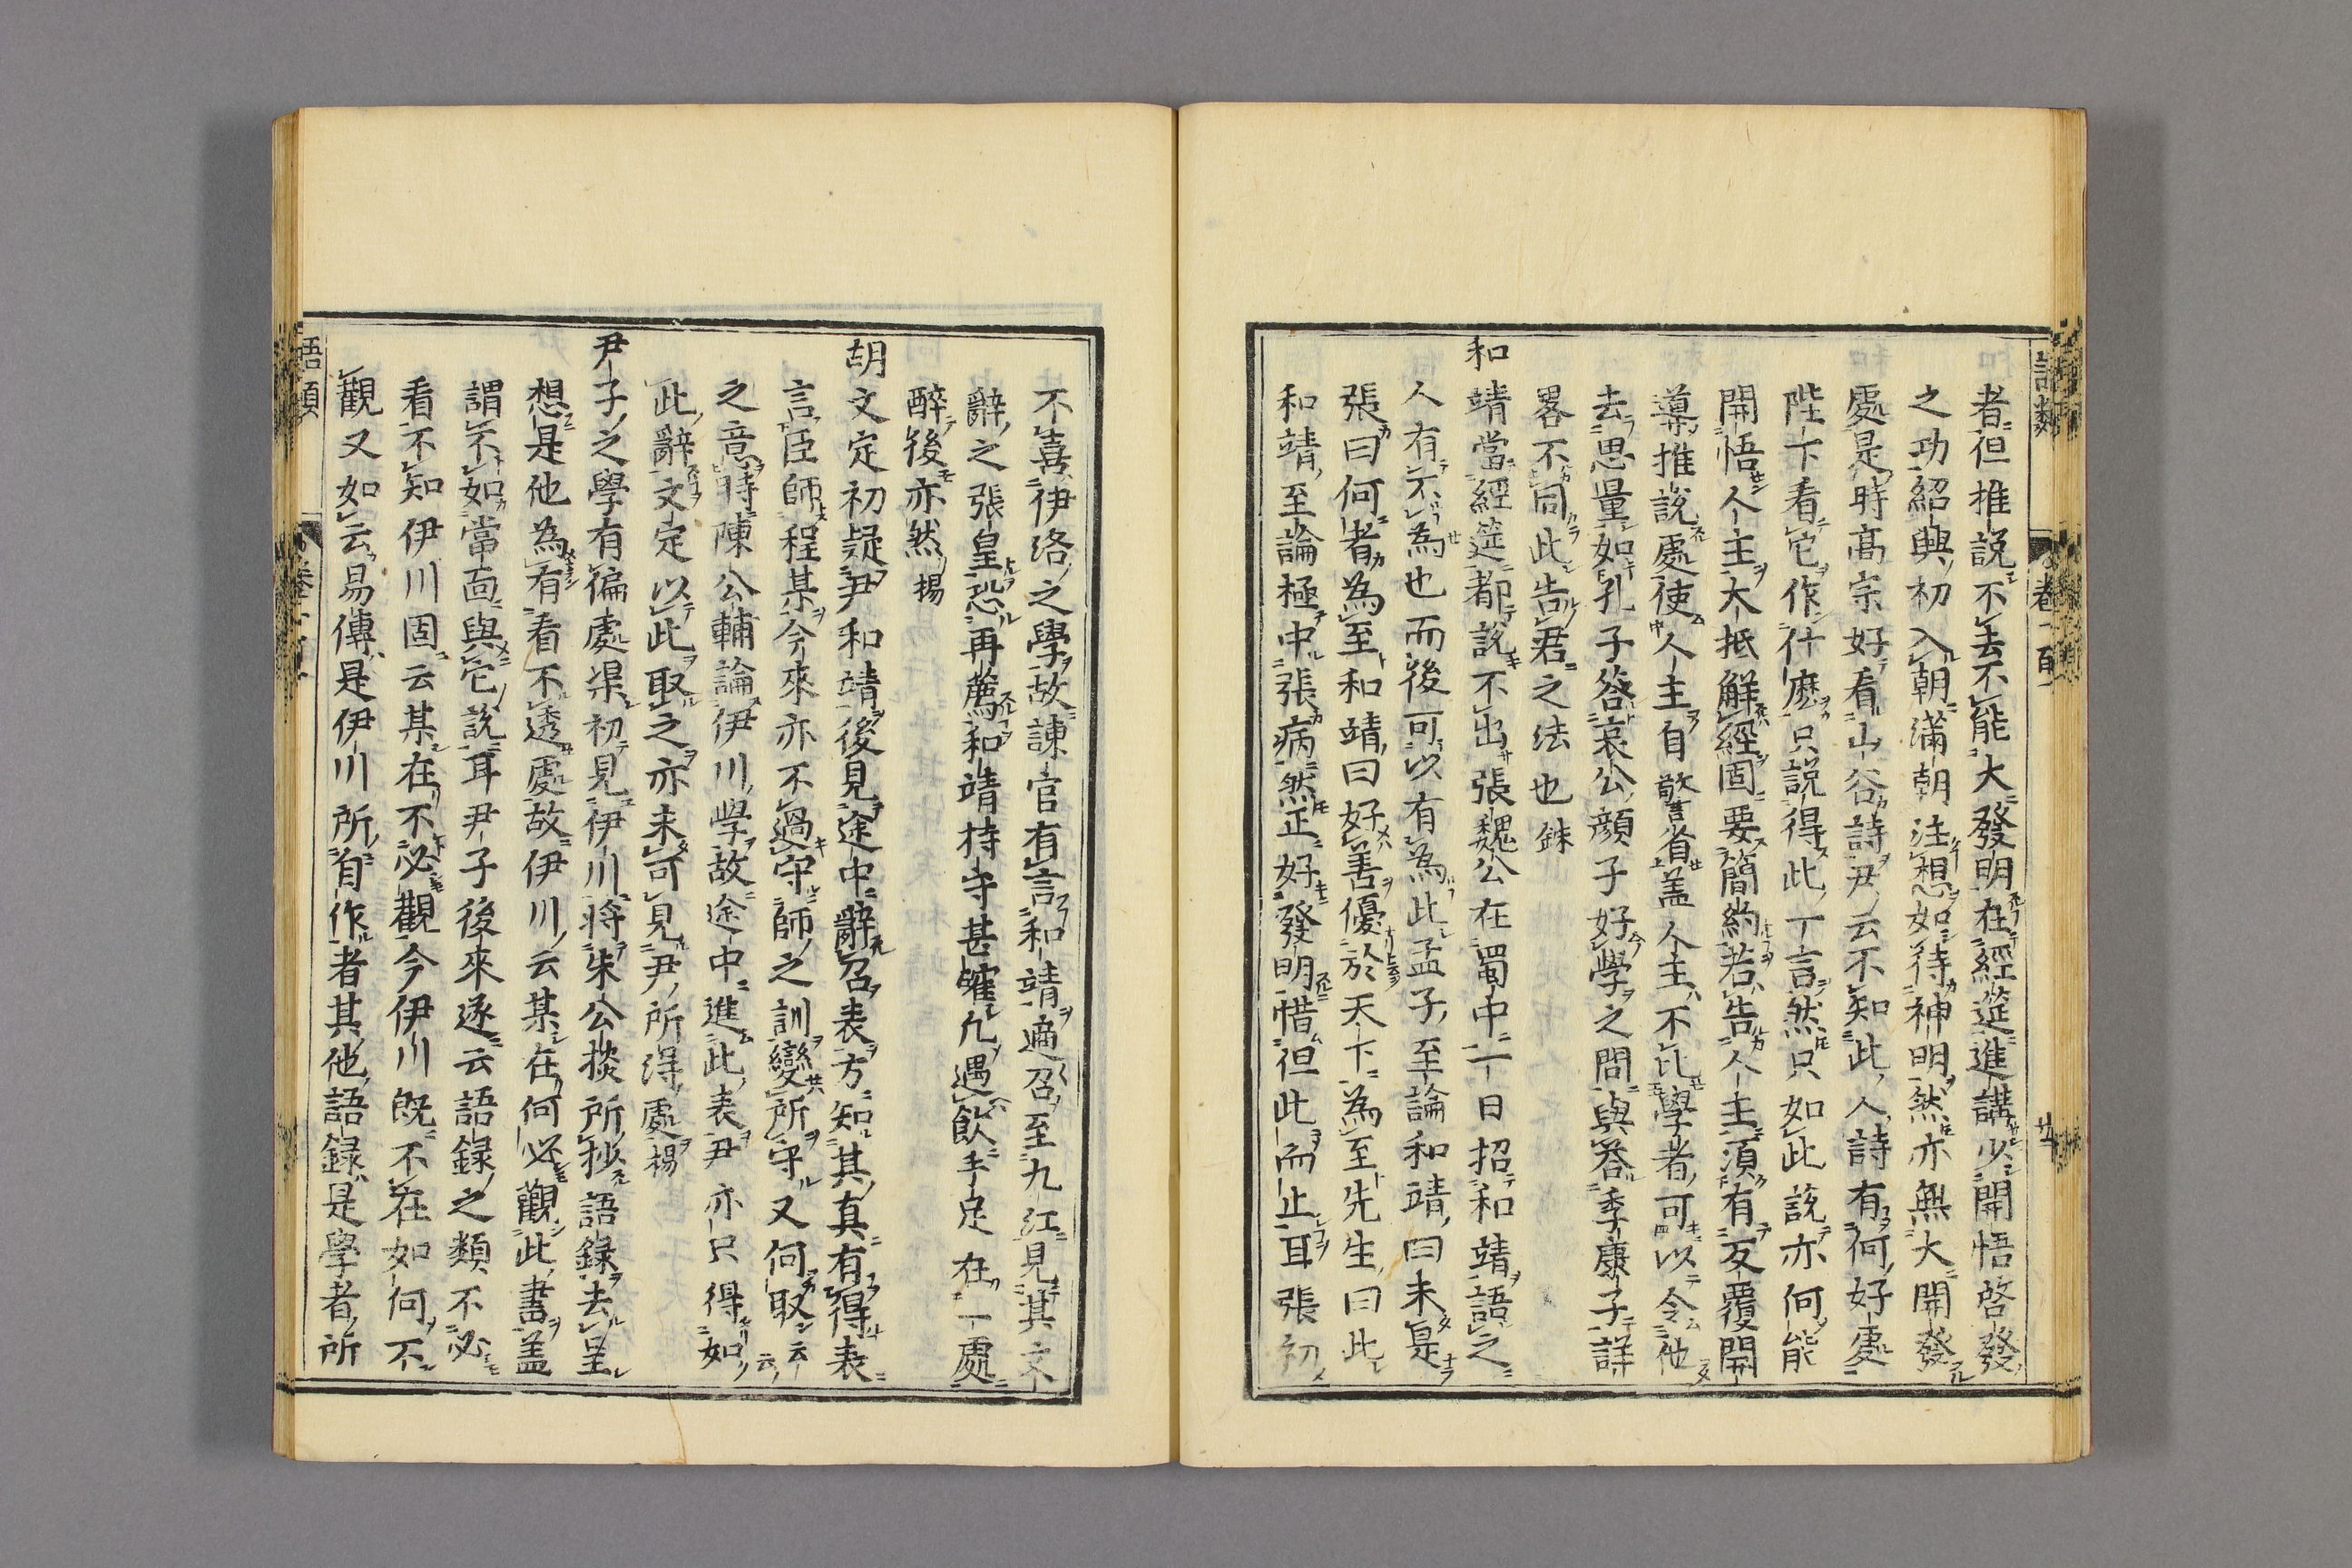 語類
卷一百一
廿五
者但推說不去不能大發明在經筵進講少開悟啓發
之功紹興初入朝滿朝注想如待神明然亦無大開發
處是時高宗好看山谷詩尹云不知此人詩有何好處
陛下看它作什麽只說得此一言然只如此說亦何能
開悟人主大抵解經固要簡約若告人主須有反覆開
導推說處使人主自警省盖人主不比學者可以令他
去思量如孔子答哀公顔子好學之問與答季康子詳
畧不同此告君之法也銖
和靖當經筵都說不出張魏公在蜀中一日招和靖語之
人有不為也而後可以有為此孟子至論和靖曰未是
張曰何者為至和靖曰好善優於天下為至先生曰此
和靖至論極中張病然正好發明惜但此而止耳張初
不喜伊洛之學故諫官有言和靖適召至九江見其文
辭之張皇恐再薦和靖持守甚確凡遇飲手足在一處
醉後亦然揚
胡文定初疑尹和靖後見途中辭召表方知其真有得表
言臣師程某今來亦不過守師之訓變所守又何取云云
之意時陳公輔論伊川學故途中進此表尹亦只得如
此辭文定以此取之亦未可見尹所得處揚
尹子之學有偏處渠初見伊川將朱公掞所抄語錄去呈
想是他為有看不透處故伊川云某在何必觀此書盖
謂不如當面與它說耳尹子後來遂云語錄之類不必
看不知伊川固云某在不必觀今伊川既不在如何不
觀又如云易傳是伊川所自作者其他語錄是學者所
語類